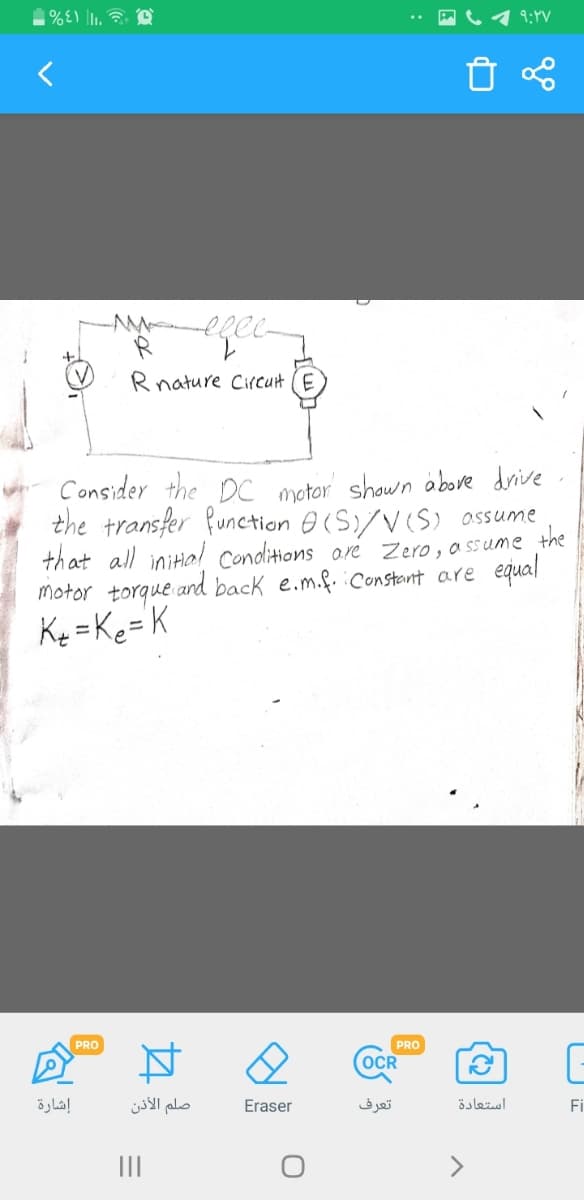 %٤١ ٩:٢٧
R L
+ V - Rnature Circuit E
Consider the DC motor shown above drive
the transfer function θ(S)/V(S) assume
that all initial Conditions are Zero, assume the
motor torque and back e.m.f. Constant are equal
Kt=Ke=K
PRO PRO
OCR
إشارة صلم الأذن Eraser تعرف استعادة Fi